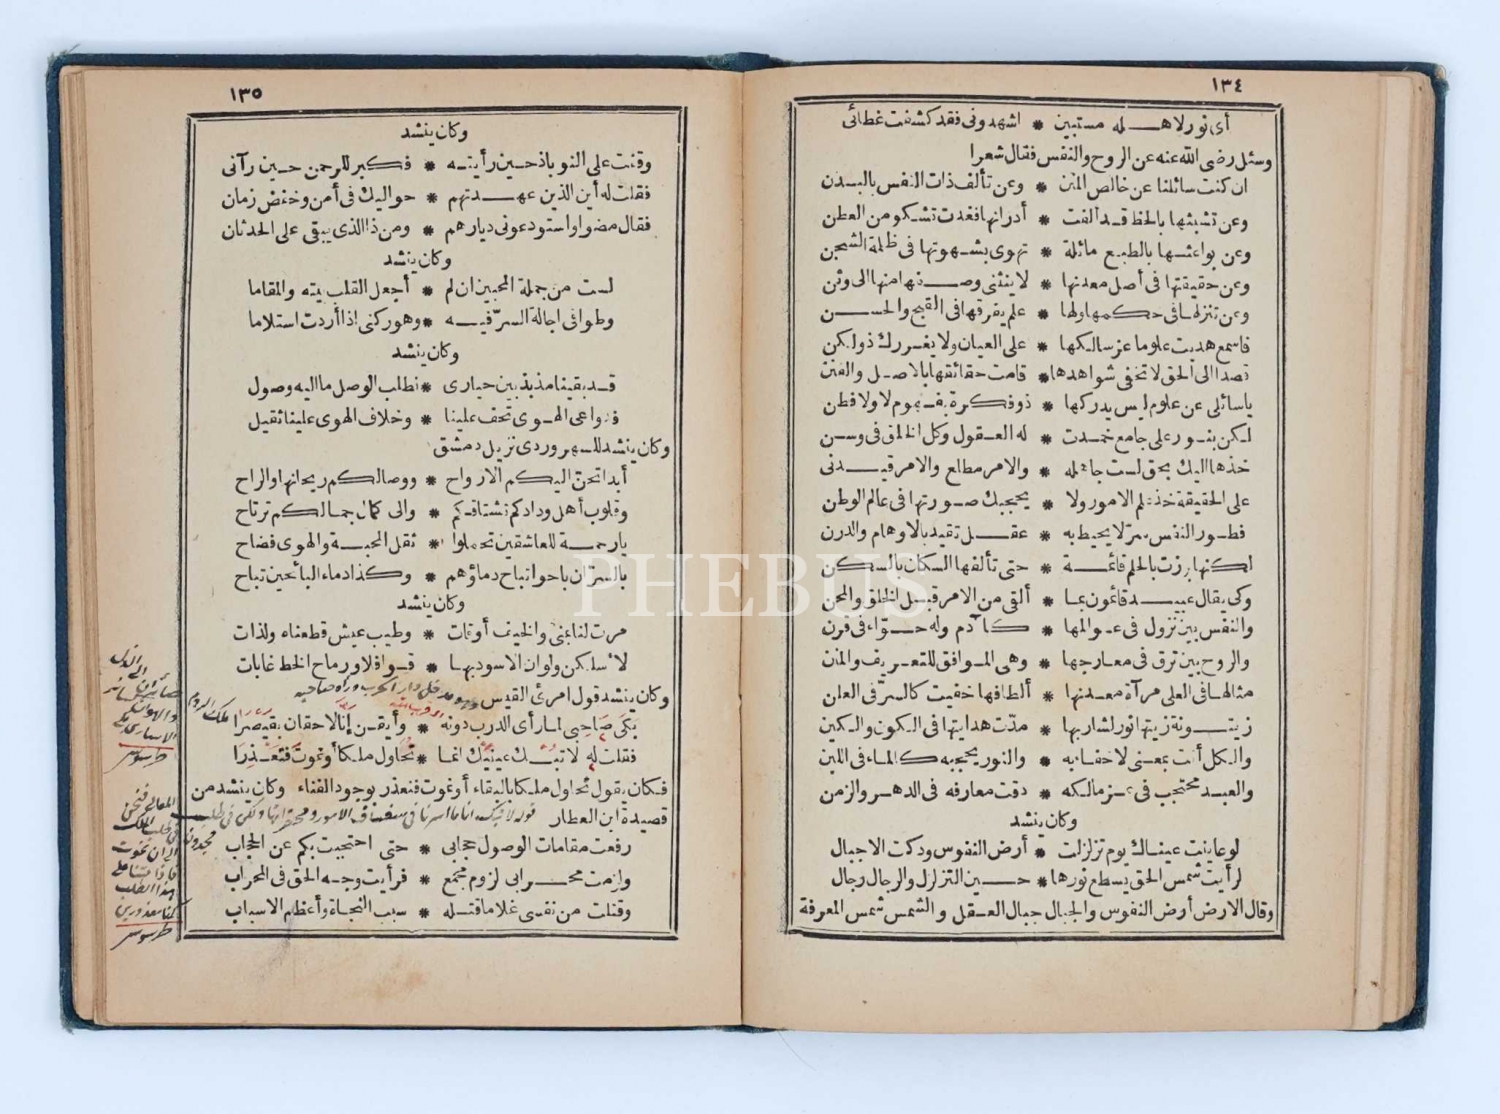 ١٣٤
أى نور لاهـــله مستبين * اشهدونى فقد كشفت غطائى
وسئل رضى الله عنه عن الروح والنفس فقال شعرا
ان كنت سائلنا عن خالص المنن * وعن تألف ذات النفس بالبدن
وعن تشبثها بالحظ قد ألفت * أدرانها فغدت تشكو من العطن
وعن بواعثها بالطبع مائلة * تهوى بشهوتها فى ظلمة الشجن
وعن حقيقتها فى أصل معدنها * لا ينثنى وصفها منها الى وثن
وعن تنزلها فى حكمها ولها * علم يفرقها فى القبح والحسن
فاسمع هديت علوما عز سالكها * على العيان ولا يغررك ذو لكن
تصدا الى الحق لا تخفى شواهدها * قامت حقائقها بالاصل والفنن
يا سائلى عن علوم ليس يدركها * ذو فكرة بفهوم لا ولا فطن
لكن بنور على جامع خمدت * له العقول وكل الخلق فى وسن
خذها اليك بحق لست جاهله * والامر مطلع والامر قيدنى
على الحقيقة خذ علم الامور ولا * يحجبك صورتها فى عالم الوطن
فطور النفس سر لا يحيط به * عقل تقيد بالاوهام والدرن
لكنها برزت بالحلم قائمة * حتى تألفها السكان بالسكن
وكى يقال عبيد قائمون بما * ألقى من الامر قبل الخلق والمحن
والنفس بين نزول فى عوالمها * كآدم وله حواء فى قرن
والروح بين ترق فى معارجها * وهى الموافق للتعريف والمنن
مثالها فى العلى مرآة معدنها * ألطافها خفيت كالسر فى العلن
زيتونة زيتها نور لشاربها * مدت هدايتها فى الكون والكين
والكل أنت بمعنى لا خفاء به * والنور يحجبه كالماء فى اللبن
والعبد محتجب فى عز مالكه * دقت معارفه فى الدهر والزمن
وكان ينشد
لو عاينت عيناك يوم تزلزلت * أرض النفوس ودكت الاجبال
لرأيت شمس الحق يسطع نورها * حين التزلزل والرجال رجال
وقال الارض أرض النفوس والجبال جبال العقل والشمس شمس المعرفة
١٣٥
وكان ينشد
وقفت على النوباذ حين رأيته * فكبر للرحمن حين رآنى
فقلت له أين الذين عهدتهم * حواليك فى أمن وخفض زمان
فقال مضوا واستودعونى ديارهم * ومن ذا الذى يبقى على الحدثان
وكان ينشد
لست من جملة المحبين ان لم * أجعل القلب بيته والمقاما
وطوافى اجالة السر فيه * وهو ركنى اذا أردت استلاما
وكان ينشد
قد بقينا مذبذبين حيارى * نطلب الوصل ما اليه وصول
فدواعى الهوى تخف علينا * وخلاف الهوى علينا ثقيل
وكان ينشد للسهروردى نزيل دمشق
أبدا تحن اليكم الارواح * ووصالكم ريحانها والراح
وقلوب أهل ودادكم تشتاقكم * والى كمال جمالكم ترتاح
يا رحمة للعاشقين تحملوا * ثقل المحبة والهوى فضاح
بالسر ان باحوا تباح دماؤهم * وكذا دماء البائحين تباح
وكان ينشد
مرت لنا بمنى والخيف أوقات * وطيب عيش قطعناه ولذات
لاسلكن ولو ان الاسود بها * قوافلا ورماح الخط غابات
وكان ينشد قول امرئ القيس
بكى صاحبى لما رأى الدرب دونه * وأيقن انا لاحقان بقيصرا
فقلت له لا تبك عينك انما * نحاول ملكا أو نموت فنعذرا
فكان يقول نحاول ملكا بالبقاء أو نموت فنعذر بوجود الفناء وكان ينشد من
قصيدة ابن العطار
رفعت مقامات الوصول حجابى * حتى احتجبت بكم عن الحجاب
ولزمت محرابى لزوم مجمع * فرأيت وجه الحق فى المحراب
وقتلت من نفسى غلاما قتله * سبب النجاة وأعظم الاسباب
PHEBUS